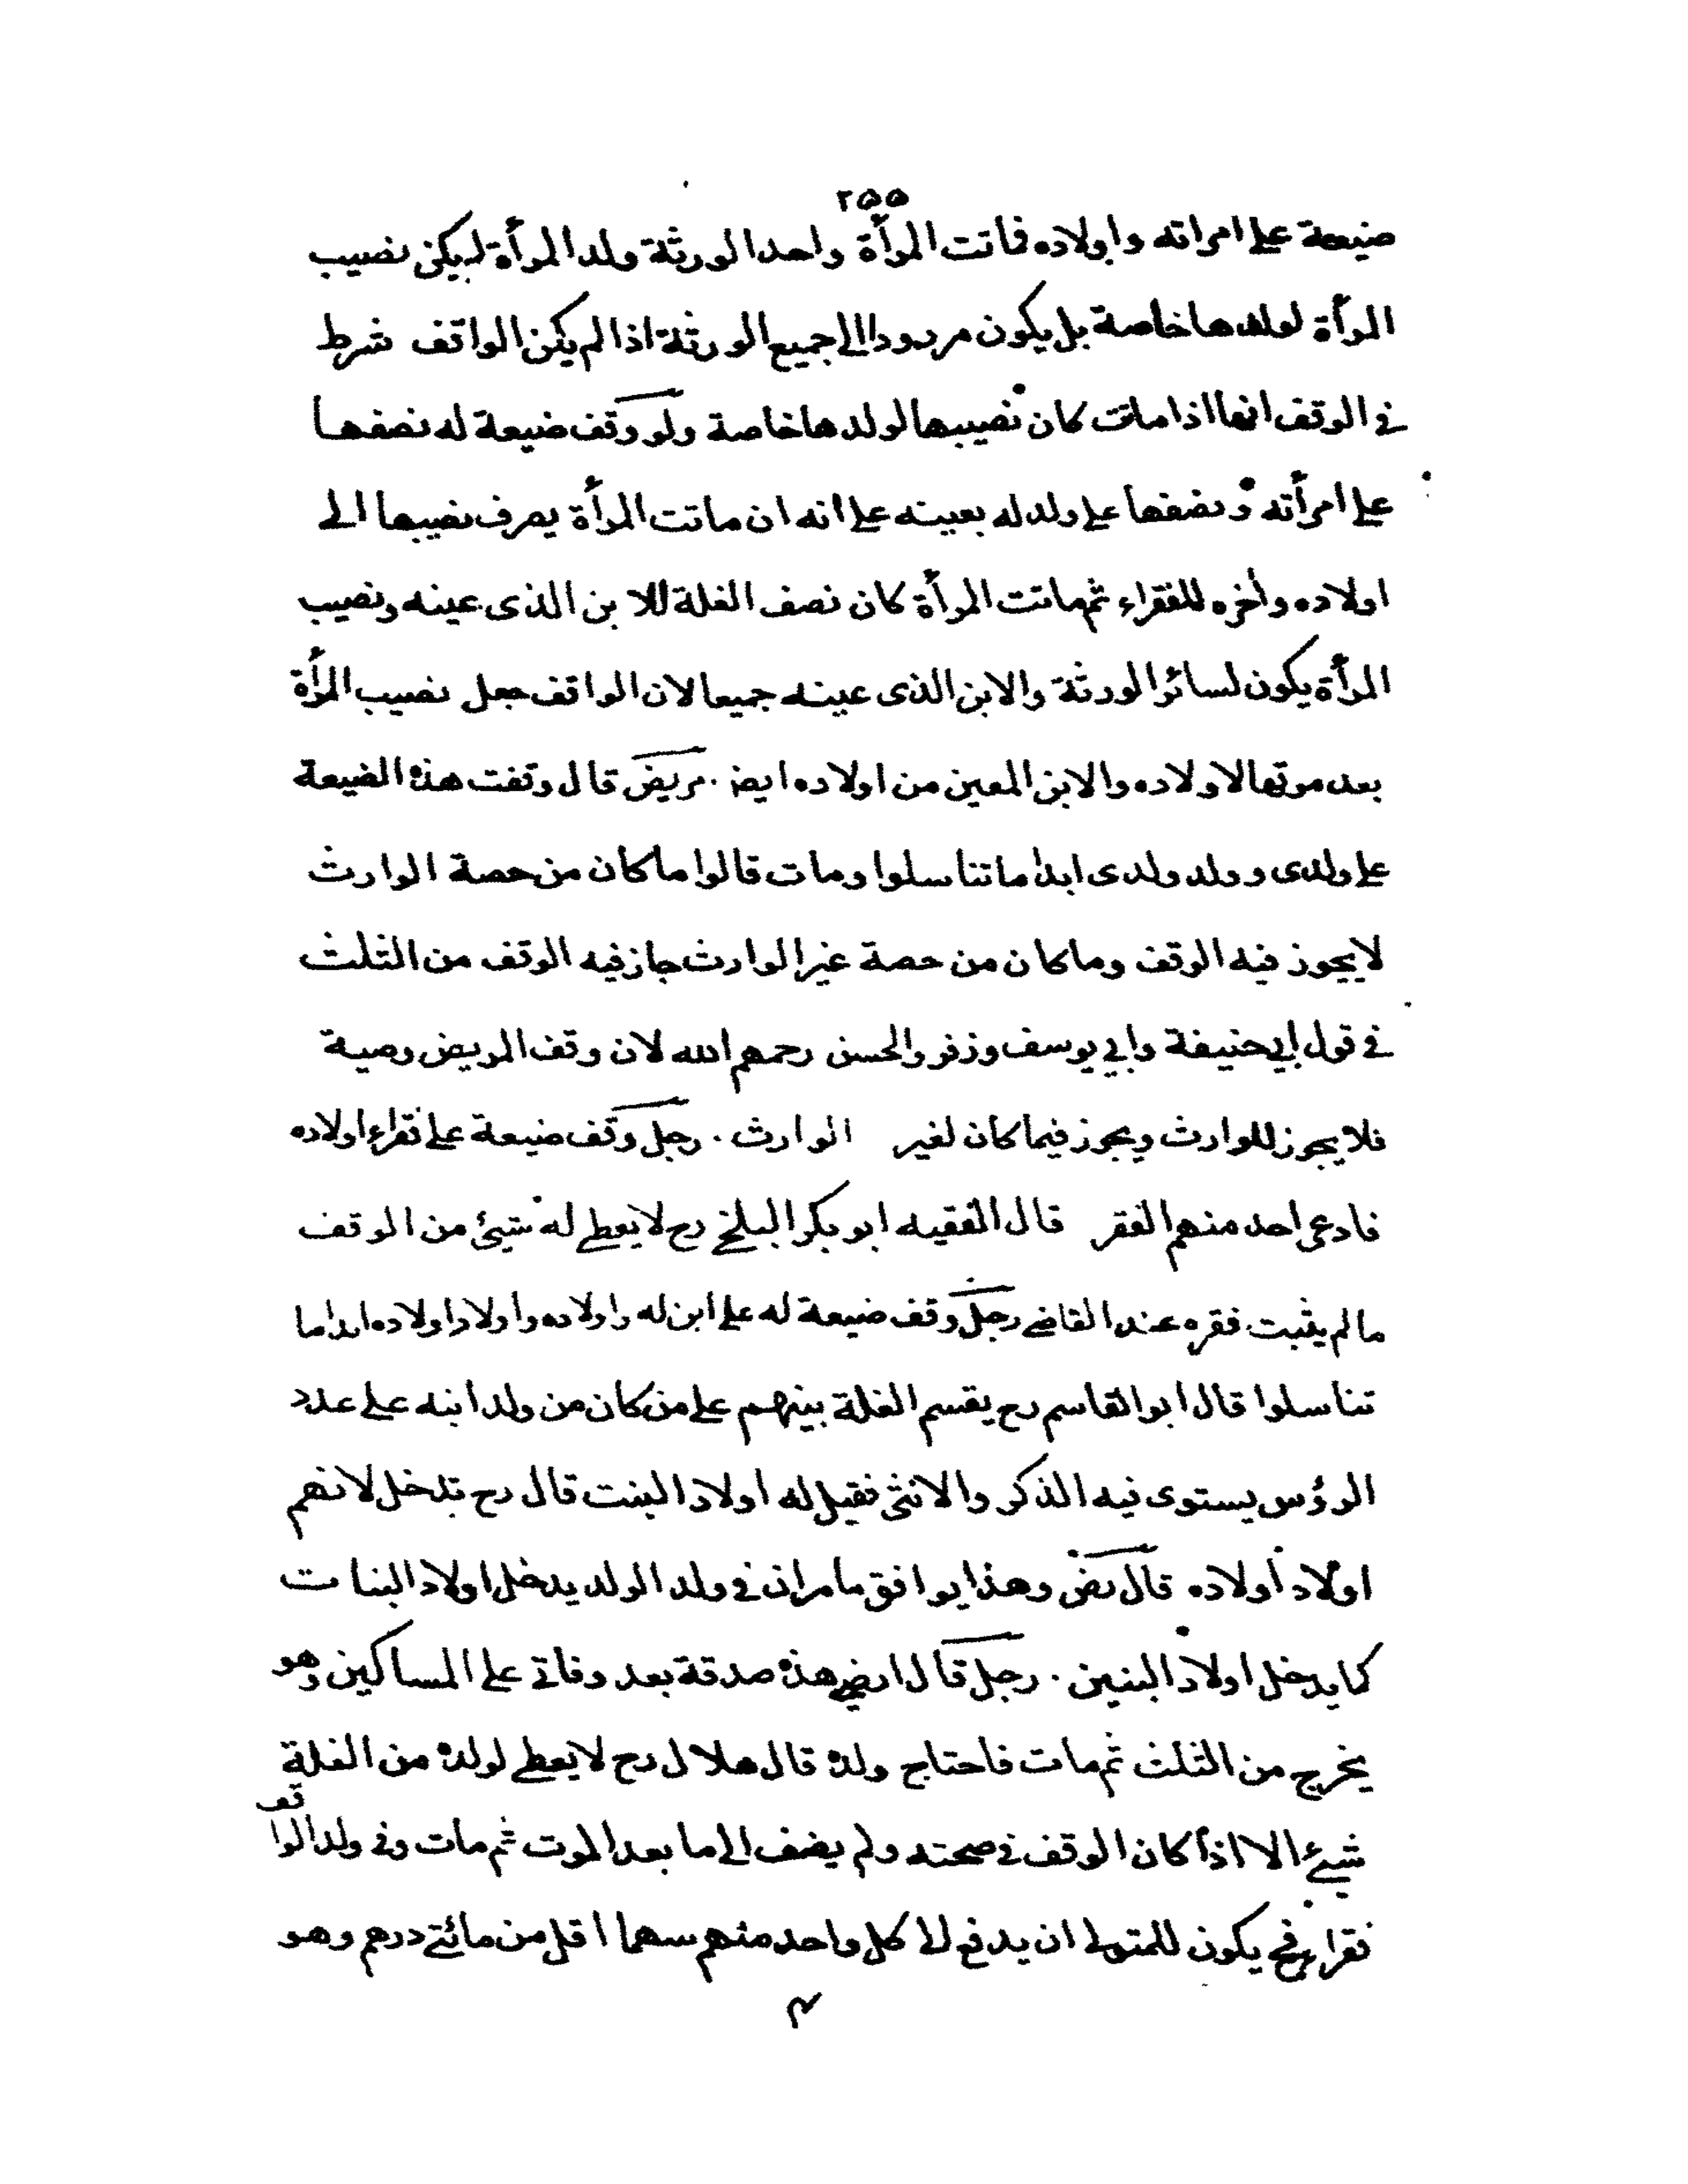 ٢۵۵
ضيعة على امراته واولاده فماتت المرأة واحد الورثة ولد المرأة لم يكن نصيب
المرأة لولدها خاصة بل يكون مردودا الى جميع الورثة اذا لم يكن الواقف شرط
فى الوقف انها اذا ماتت كان نصيبها لولدها خاصة ولو وقف ضيعة له نصفها
على امرأته ونصفها على ولد له بعينه على انه ان ماتت المرأة يصرف نصيبها الى
اولاده واخره للفقراء ثم ماتت المرأة كان نصف الغلة للابن الذى عينه ونصيب
المرأة يكون لسائر الورثة والابن الذى عينه جميعا لان الواقف جعل نصيب المرأة
بعد موتها لاولاده والابن المعين من اولاده ايض . مريض قال وقفت هذه الضيعة
على ولدى وولد ولدى ابدا ما تناسلوا ومات قالوا ما كان من حصة الوارث
لا يجوز فيه الوقف وما كان من حصة غير الوارث جاز فيه الوقف من الثلث
فى قول ابي حنيفة وابي يوسف وزفر والحسن رحمهم الله لان وقف المريض وصية
فلا يجوز للوارث ويجوز فيما كان لغير الوارث . رجل وقف ضيعة على فقراء اولاده
فادعى احد منهم الفقر قال الفقيه ابو بكر البلخي رح لا يعطى له شيئ من الوقف
ما لم يثبت فقره عند القاضى رجل وقف ضيعة له على ابن له واولاده واولاد اولاده ابدا ما
تناسلوا قال ابو القاسم رح يقسم الغلة بينهم على من كان من ولد ابنه على عدد
الرؤس يستوى فيه الذكر والانثى فقيل له اولاد البنت قال رح تدخل لانهم
اولاد اولاده قال رض وهذا يوافق ما مر ان فى ولد الولد يدخل اولاد البنات
كما يدخل اولاد البنين . رجل قال ارضى هذه صدقة بعد وفاتى على المساكين وهو
يخرج من الثلث ثم مات فاحتاج ولده قال هلال رح لا يعطى لولده من الغلة
شيئ الا اذا كان الوقف فى صحته ولم يضف الى ما بعد الموت ثم مات وفى ولد الواقف
فقراء فح يكون للمتولى ان يدفع الى كل واحد منهم سهما اقل من مائتى درهم وهو